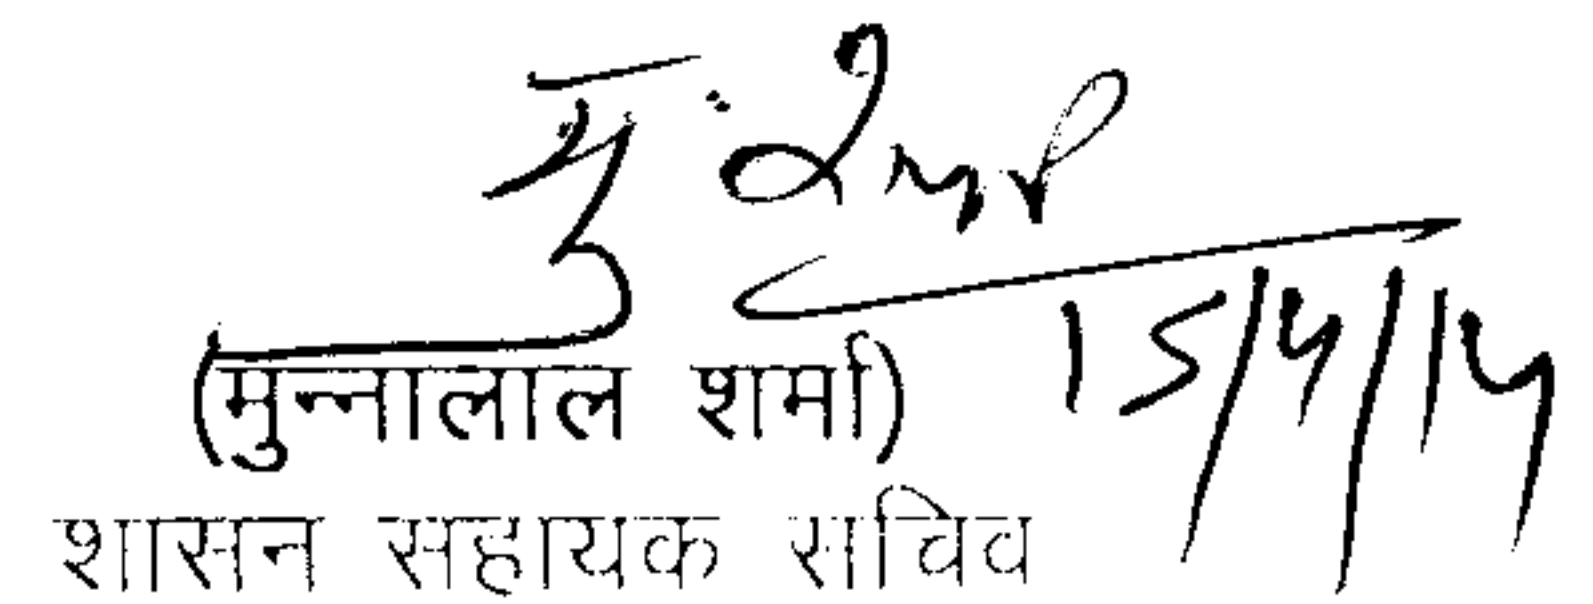 15/4/14
(मुन्नालाल शर्मा)
शासन सहायक सचिव